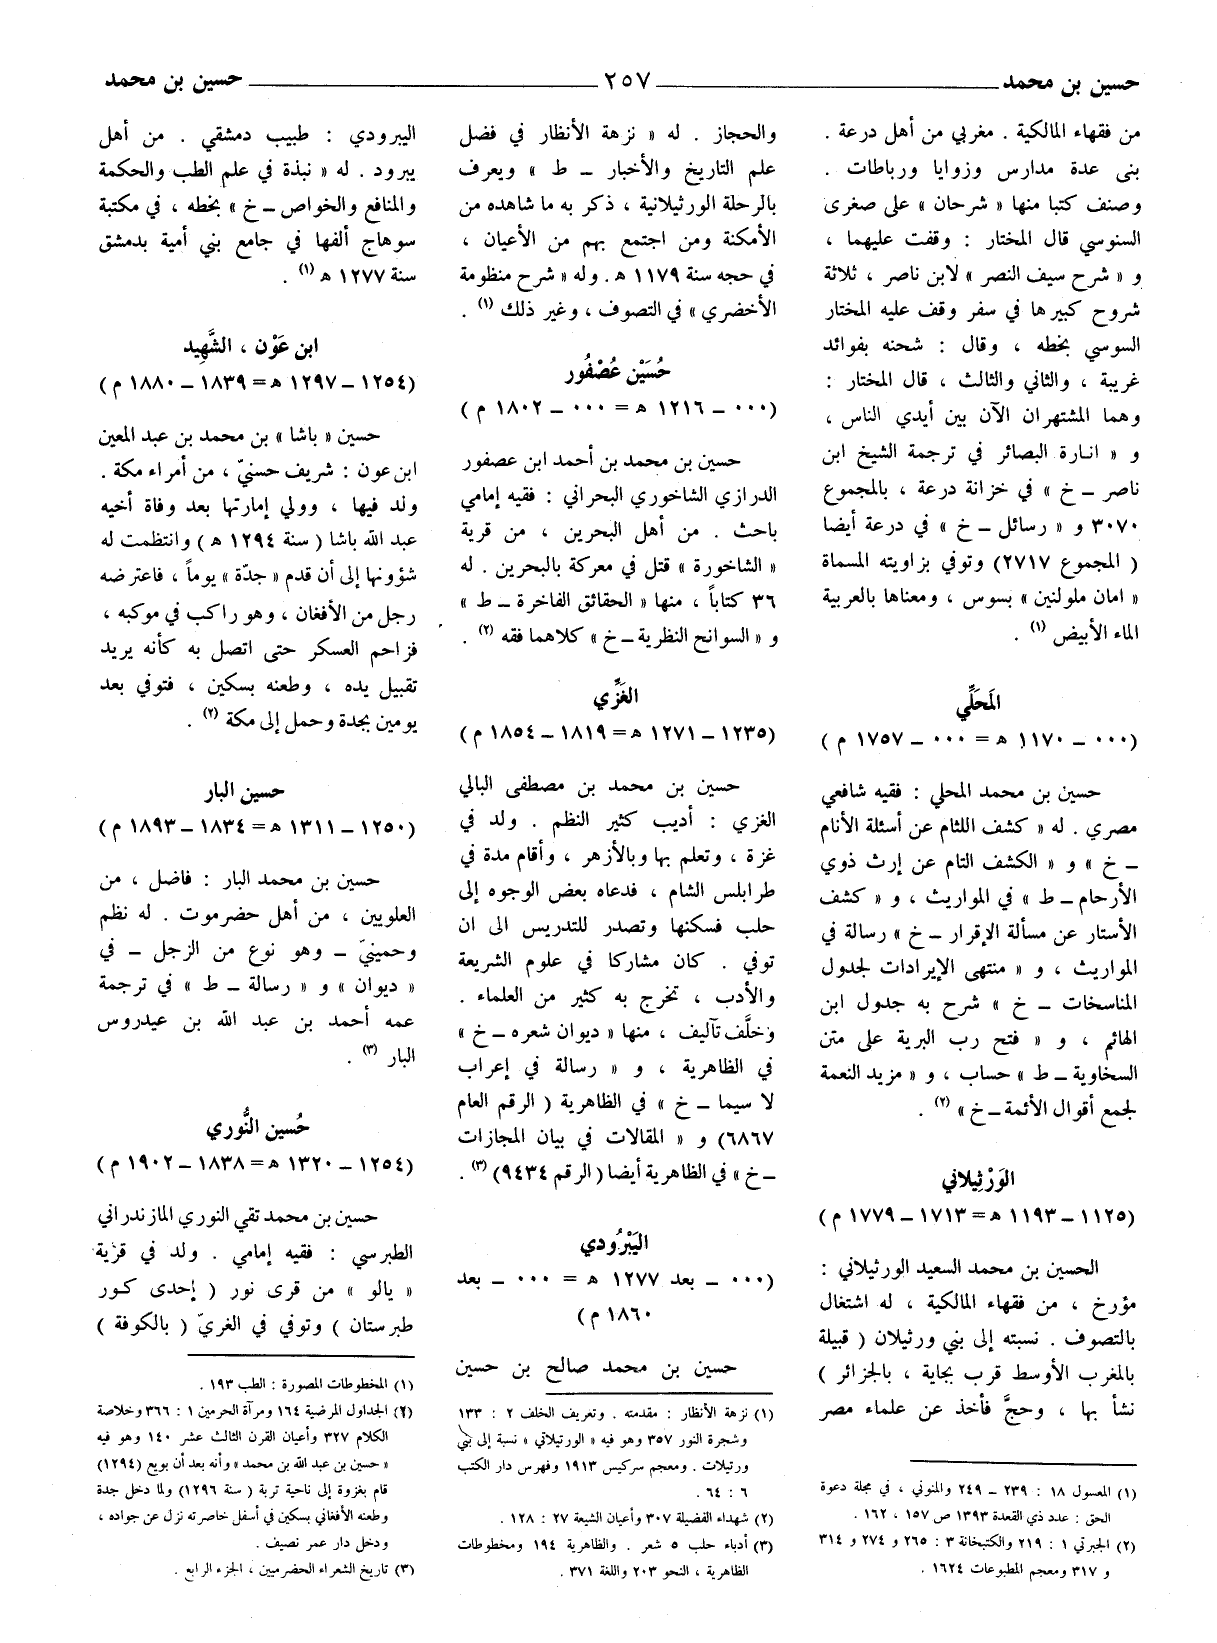 حسين بن محمد ٢٥٧ حسين بن محمد
من فقهاء المالكية . مغربي من أهل درعة .
بنى عدة مدارس وزوايا ورباطات .
وصنف كتبا منها « شرحان » على صغرى
السنوسي قال المختار : وقفت عليهما ،
و « شرح سيف النصر » لابن ناصر ، ثلاثة
شروح كبيرها في سفر وقف عليه المختار
السوسي بخطه ، وقال : شحنه بفوائد
غريبة ، والثاني والثالث ، قال المختار :
وهما المشتهران الآن بين أيدي الناس ،
و « انارة البصائر في ترجمة الشيخ ابن
ناصر ــ خ » في خزانة درعة ، بالمجموع
٣٠٧٠ و « رسائل ــ خ » في درعة أيضا
( المجموع ٢٧١٧) وتوفي بزاويته المسماة
« امان ملولنين » بسوس ، ومعناها بالعربية
الماء الأبيض (١) .
المَحَلِّي
(٠٠٠ ــ ١١٧٠ هـ = ٠٠٠ ــ ١٧٥٧ م )
حسين بن محمد المحلي : فقيه شافعي
مصري . له « كشف اللثام عن أسئلة الأنام
ــ خ » و « الكشف التام عن إرث ذوي
الأرحام ــ ط » في المواريث ، و « كشف
الأستار عن مسألة الإقرار ــ خ » رسالة في
المواريث ، و « منتهى الإيرادات لجدول
المناسخات ــ خ » شرح به جدول ابن
الهائم ، و « فتح رب البرية على متن
السخاوية ــ ط » حساب ، و « مزيد النعمة
لجمع أقوال الأئمة ــ خ » (٢) .
الوَرْثِيلاني
(١١٢٥ ــ ١١٩٣ هـ = ١٧١٣ ــ ١٧٧٩ م )
الحسين بن محمد السعيد الورثيلاني :
مؤرخ ، من فقهاء المالكية ، له اشتغال
بالتصوف . نسبته إلى بني ورثيلان ( قبيلة
بالمغرب الأوسط قرب بجاية ، بالجزائر )
نشأ بها ، وحجَّ فأخذ عن علماء مصر
(١) المعسول ١٨ : ٢٣٩ ــ ٢٤٩ والمنوني ، في مجلة دعوة
الحق : عدد ذي القعدة ١٣٩٣ ص ١٥٧ ، ١٦٢ .
(٢) الجبرتي ١ : ٢١٩ والكتبخانة ٣ : ٢٦٥ و ٢٧٤ و ٣١٤
و ٣١٧ ومعجم المطبوعات ١٦٢٤ .
والحجاز . له « نزهة الأنظار في فضل
علم التاريخ والأخبار ــ ط » ويعرف
بالرحلة الورثيلانية ، ذكر به ما شاهده من
الأمكنة ومن اجتمع بهم من الأعيان ،
في حجه سنة ١١٧٩ هـ . وله « شرح منظومة
الأخضري » في التصوف ، وغير ذلك (١) .
حُسَيْن عُصْفُور
(٠٠٠ ــ ١٢١٦ هـ = ٠٠٠ ــ ١٨٠٢ م )
حسين بن محمد بن أحمد ابن عصفور
الدرازي الشاخوري البحراني : فقيه إمامي
باحث . من أهل البحرين ، من قرية
« الشاخورة » قتل في معركة بالبحرين . له
٣٦ كتاباً ، منها « الحقائق الفاخرة ــ ط »
و « السوانح النظرية ــ خ » كلاهما فقه (٢) .
الغَزِّي
(١٢٣٥ ــ ١٢٧١ هـ = ١٨١٩ ــ ١٨٥٤ م )
حسين بن محمد بن مصطفى البالي
الغزي : أديب كثير النظم . ولد في
غزة ، وتعلم بها وبالأزهر ، وأقام مدة في
طرابلس الشام ، فدعاه بعض الوجوه إلى
حلب فسكنها وتصدر للتدريس الى ان
توفي . كان مشاركا في علوم الشريعة
والأدب ، تخرج به كثير من العلماء .
وخلَّف تآليف ، منها « ديوان شعره ــ خ »
في الظاهرية ، و « رسالة في إعراب
لا سيما ــ خ » في الظاهرية ( الرقم العام
٦٨٦٧) و « المقالات في بيان المجازات
ــ خ » في الظاهرية أيضا ( الرقم ٩٤٣٤) (٣) .
اليَبْرُودي
(٠٠٠ ــ بعد ١٢٧٧ هـ = ٠٠٠ ــ بعد
١٨٦٠ م )
حسين بن محمد صالح بن حسين
(١) نزهة الأنظار : مقدمته . وتعريف الخلف ٢ : ١٣٣
وشجرة النور ٣٥٧ وهو فيه « الورتيلاتي » نسبة إلى بني
ورتيلات . ومعجم سركيس ١٩١٣ وفهرس دار الكتب
٦ : ٦٤ .
(٢) شهداء الفضيلة ٣٠٧ وأعيان الشيعة ٢٧ : ١٢٨ .
(٣) أدباء حلب ٥ شعر . والظاهرية ١٩٤ ومخطوطات
الظاهرية ، النحو ٢٠٣ واللغة ٣٧١ .
اليبرودي : طبيب دمشقي . من أهل
يبرود . له « نبذة في علم الطب والحكمة
والمنافع والخواص ــ خ » بخطه ، في مكتبة
سوهاج ألفها في جامع بني أمية بدمشق
سنة ١٢٧٧ هـ (١) .
ابن عَوْن ، الشَّهِيد
(١٢٥٤ ــ ١٢٩٧ هـ = ١٨٣٩ ــ ١٨٨٠ م )
حسين « باشا » بن محمد بن عبد المعين
ابن عون : شريف حسنيّ ، من أمراء مكة .
ولد فيها ، وولي إمارتها بعد وفاة أخيه
عبد الله باشا ( سنة ١٢٩٤ هـ ) وانتظمت له
شؤونها إلى أن قدم « جدّة » يوماً ، فاعترضه
رجل من الأفغان ، وهو راكب في موكبه ،
فزاحم العسكر حتى اتصل به كأنه يريد
تقبيل يده ، وطعنه بسكين ، فتوفي بعد
يومين بجدة وحمل إلى مكة (٢) .
حسين البار
(١٢٥٠ ــ ١٣١١ هـ = ١٨٣٤ ــ ١٨٩٣ م )
حسين بن محمد البار : فاضل ، من
العلويين ، من أهل حضرموت . له نظم
وحمينيّ ــ وهو نوع من الزجل ــ في
« ديوان » و « رسالة ــ ط » في ترجمة
عمه أحمد بن عبد الله بن عيدروس
البار (٣) .
حُسين النُّوري
(١٢٥٤ ــ ١٣٢٠ هـ = ١٨٣٨ ــ ١٩٠٢ م )
حسين بن محمد تقي النوري المازندراني
الطبرسي : فقيه إمامي . ولد في قرية
« يالو » من قرى نور ( إحدى كور
طبرستان ) وتوفي في الغريّ ( بالكوفة )
(١) المخطوطات المصورة : الطب ١٩٣ .
(٢) الجداول المرضية ١٦٤ ومرآة الحرمين ١ : ٣٦٦ وخلاصة
الكلام ٣٢٧ وأعيان القرن الثالث عشر ١٤٠ وهو فيه
« حسين بن عبد الله بن محمد » وأنه بعد أن بويع (١٢٩٤)
قام بغزوة إلى ناحية تربة ( سنة ١٢٩٦) ولما دخل جدة
وطعنه الأفغاني بسكين في أسفل خاصرته نزل عن جواده ،
ودخل دار عمر نصيف .
(٣) تاريخ الشعراء الحضرميين ، الجزء الرابع .